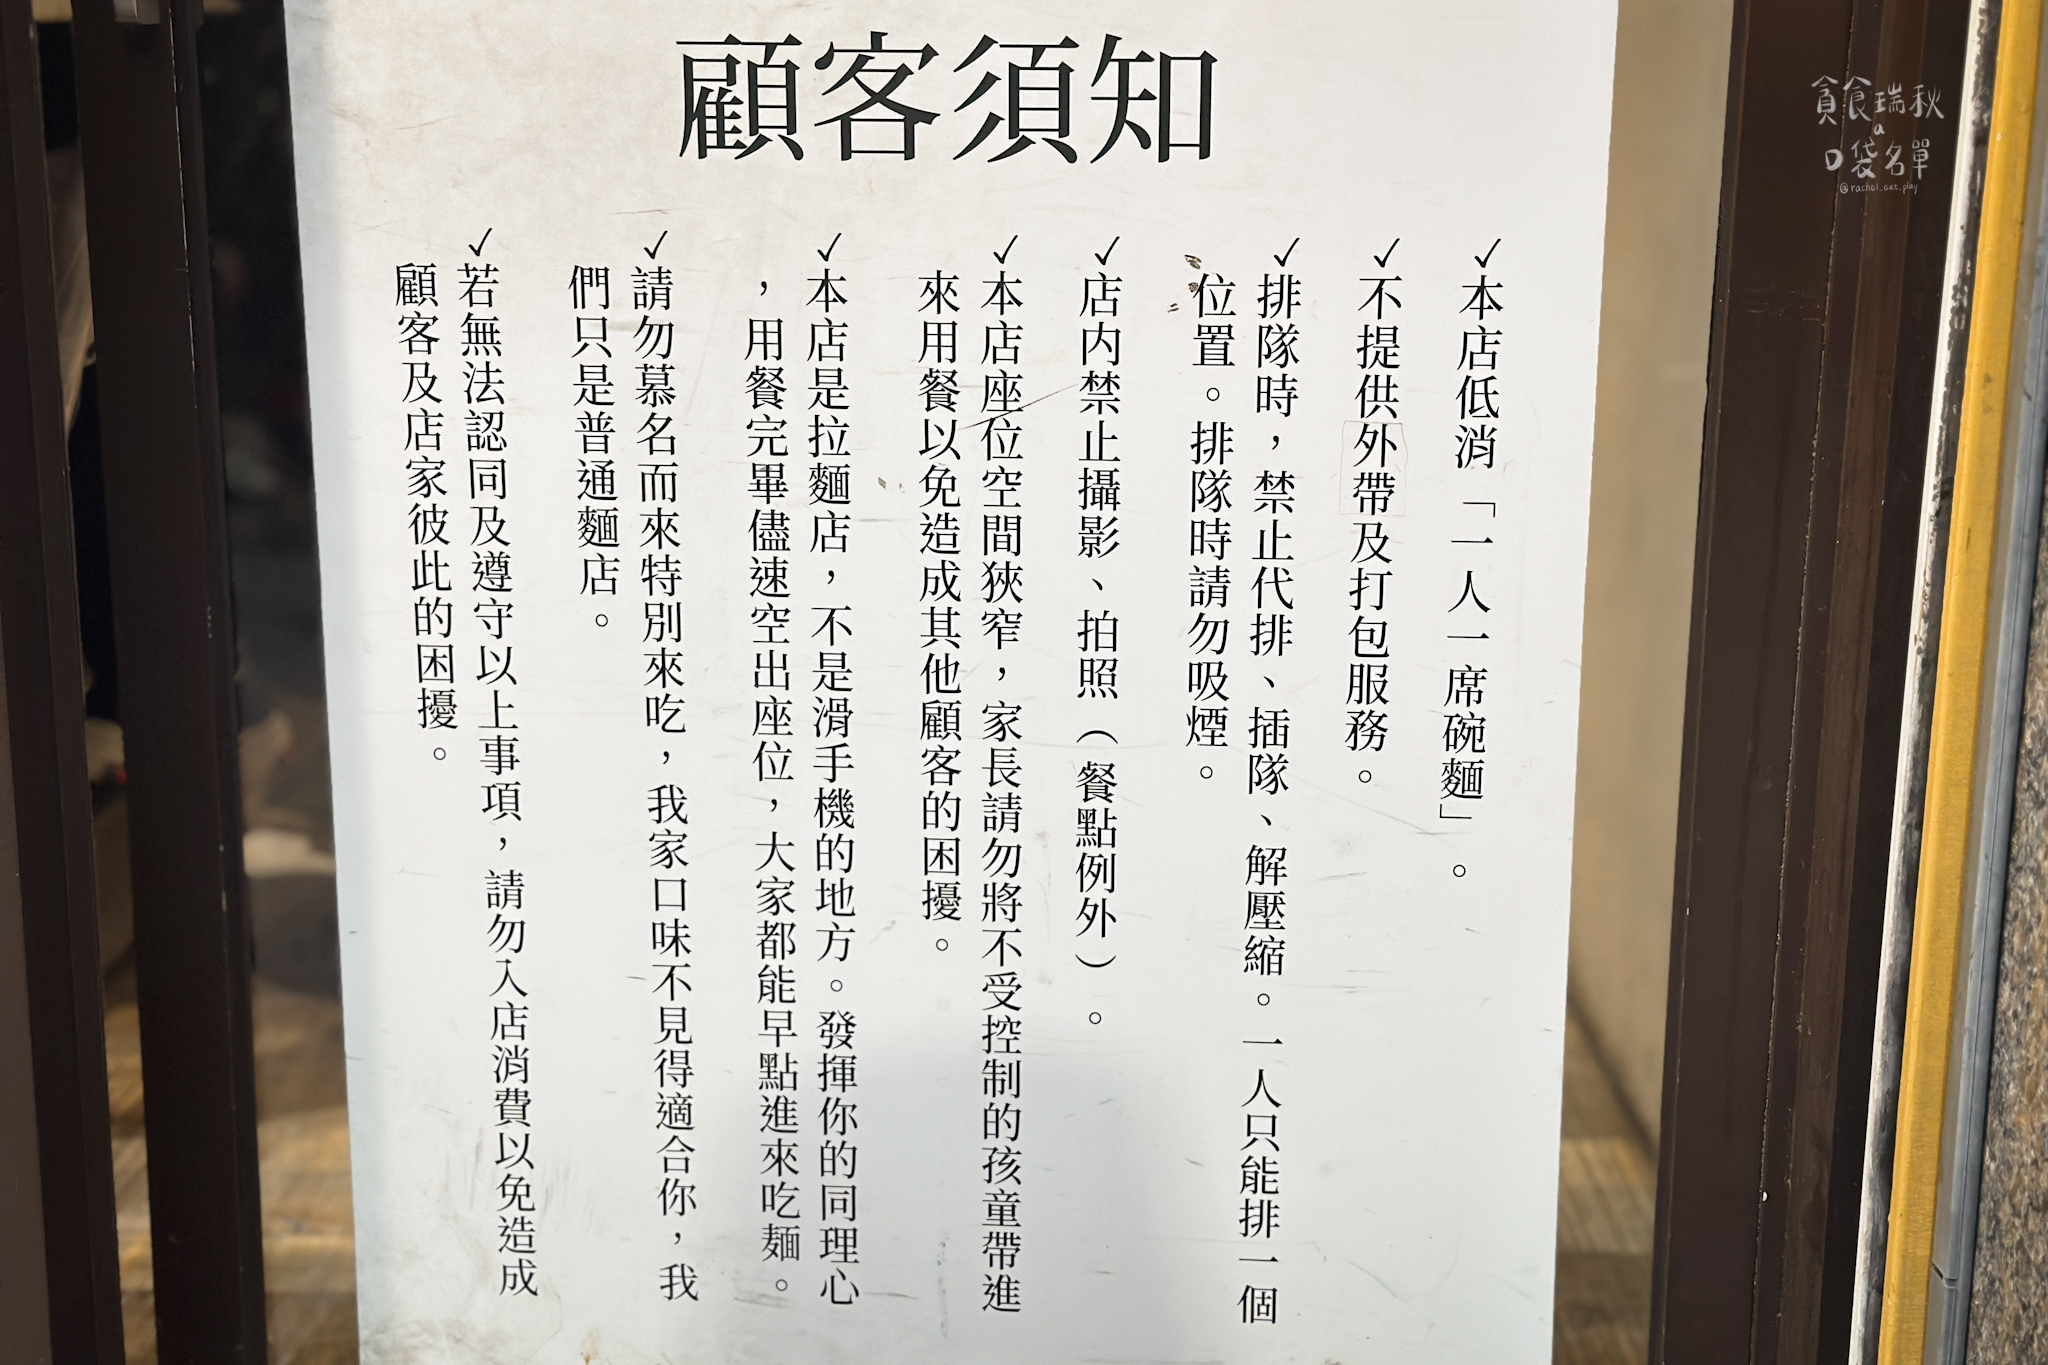 顧客須知
✓本店低消「一人一席碗麵」。
✓不提供外帶及打包服務。
✓排隊時，禁止代排、插隊、解壓縮。一人只能排一個
位置。排隊時請勿吸煙。
✓店內禁止攝影、拍照（餐點例外）。
✓本店座位空間狹窄，家長請勿將不受控制的孩童帶進
來用餐以免造成其他顧客的困擾。
✓本店是拉麵店，不是滑手機的地方。發揮你的同理心
，用餐完畢儘速空出座位，大家都能早點進來吃麵。
✓請勿慕名而來特別來吃，我家口味不見得適合你，我
們只是普通麵店。
✓若無法認同及遵守以上事項，請勿入店消費以免造成
顧客及店家彼此的困擾。
貪食瑞秋
a
口袋名單
@rachel_eat_play